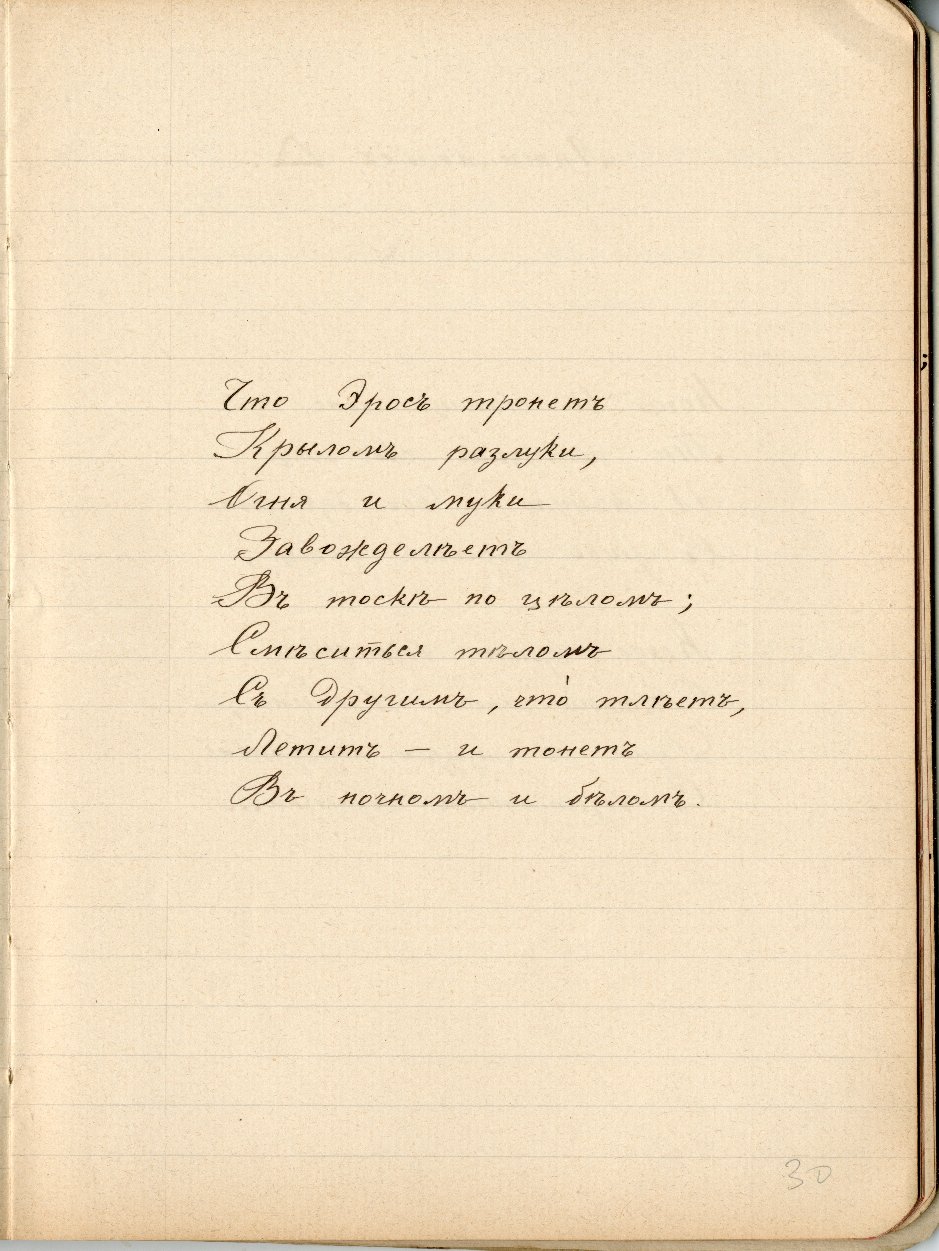 Что Эросъ тронетъ
Крыломъ разлуки,
Огня и муки
Завожделѣетъ
Въ тоскѣ по цѣломъ;
Смѣситься тѣломъ
Съ Другимъ, что́ тлѣетъ,
Летитъ — и тонетъ
Въ ночномъ и бѣломъ.
30